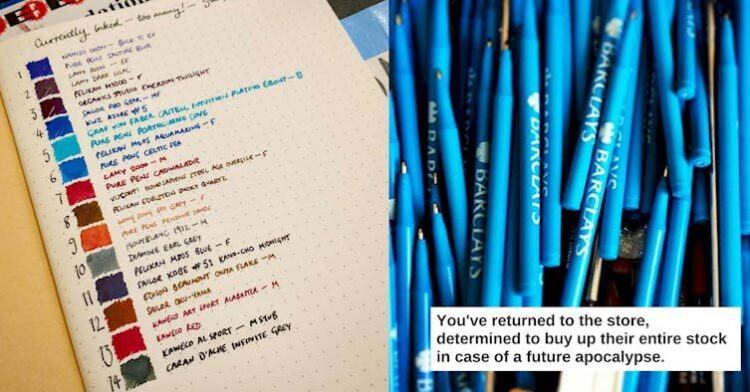 Currently inked — too many! —
1
NAMISU
PURE PENS
LAMY
LAMY DARK LILAC
2
PELIKAN M1000 – F
3
ORGANICS STUDIO EMERSON TWILIGHT
SAILOR PRO GEAR – MF
4
KWZ AZURE #5
GRAF VON FABER CASTELL INTUITION PLATINO EBONY – B
5
PURE PENS PORTHCURNO COVE
PELIKAN M205 AQUAMARINE – F
6
PURE PENS CELTIC SEA
LAMY 2000 – M
7
PURE PENS CADWALADR
VISCONTI HOMO SAPIENS STEEL AGE OVERSIZE – F
8
PELIKAN EDELSTEIN SMOKY QUARTZ
GREY – F
9
PURE PENS
MONTBLANC 1912 – M
10
DIAMINE EARL GREY
PELIKAN M205 BLUE – F
11
SAILOR KOBE #51 KANO-CHO MIDNIGHT
EDISON BEAUMONT ONYX FLAKE – M
12
SAILOR OKU-YAMA
KAWECO ART SPORT ALABASTER – M
13
KAWECO RED
KAWECO AL SPORT – M STUB
14
CARAN D'ACHE INFINITE GREY
BARCLAYS
BARCLAYS
BARCLAYS
BARCLAYS
BARCLAYS
You've returned to the store,
determined to buy up their entire stock
in case of a future apocalypse.